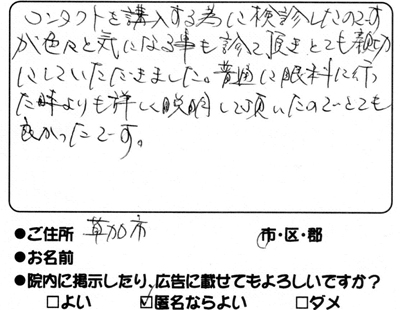 コンタクトを購入する為に検診したのですが
色々と気になる事も診て頂きとても親切
にしていただきました。普通に眼科に行っ
た時よりも詳しく説明して頂いたのでとても
良かったです。
●ご住所 草加市 市・区・郡
●お名前
●院内に掲示したり、広告に載せてもよろしいですか?
□よい ☑匿名ならよい □ダメ